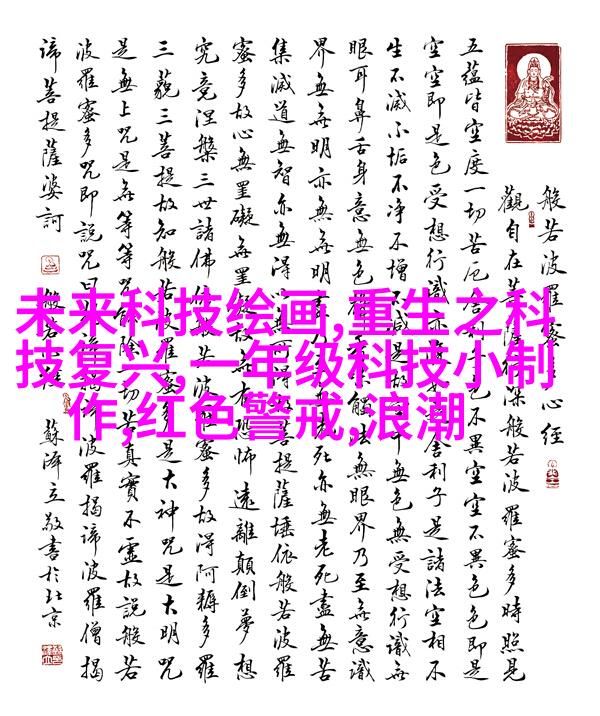 未来科技绘画,重生之科
技复兴,一年级科技小制
作,红色警戒,浪潮
般若波羅蜜多心經
觀自在菩薩行深般若波羅蜜多時照見
五蘊皆空度一切苦厄舍利子色不異空空不異色色即是
空空即是色受想行識亦復如是舍利子是諸法空相不
生不滅不垢不净不增不減是故空中無色無受想行識無
眼耳鼻舌身意無色聲香味觸法無眼界乃至無意識
界無無明亦無無明盡乃至無老死亦無老死盡無苦
集滅道無智亦無得以無所得故菩提薩埵依般若波羅
蜜多故心無罣礙無罣礙故無有恐怖遠離顛倒夢想
究竟涅槃三世諸佛依般若波羅蜜多故得阿耨多羅
三藐三菩提故知般若波羅蜜多是大神咒是大明咒
是無上咒是無等等咒能除一切苦真實不虛故說般若
波羅蜜多咒即說咒曰揭諦揭諦波羅揭諦波羅僧揭
諦菩提薩婆訶 般若心經 蘇澤立敬書於北京